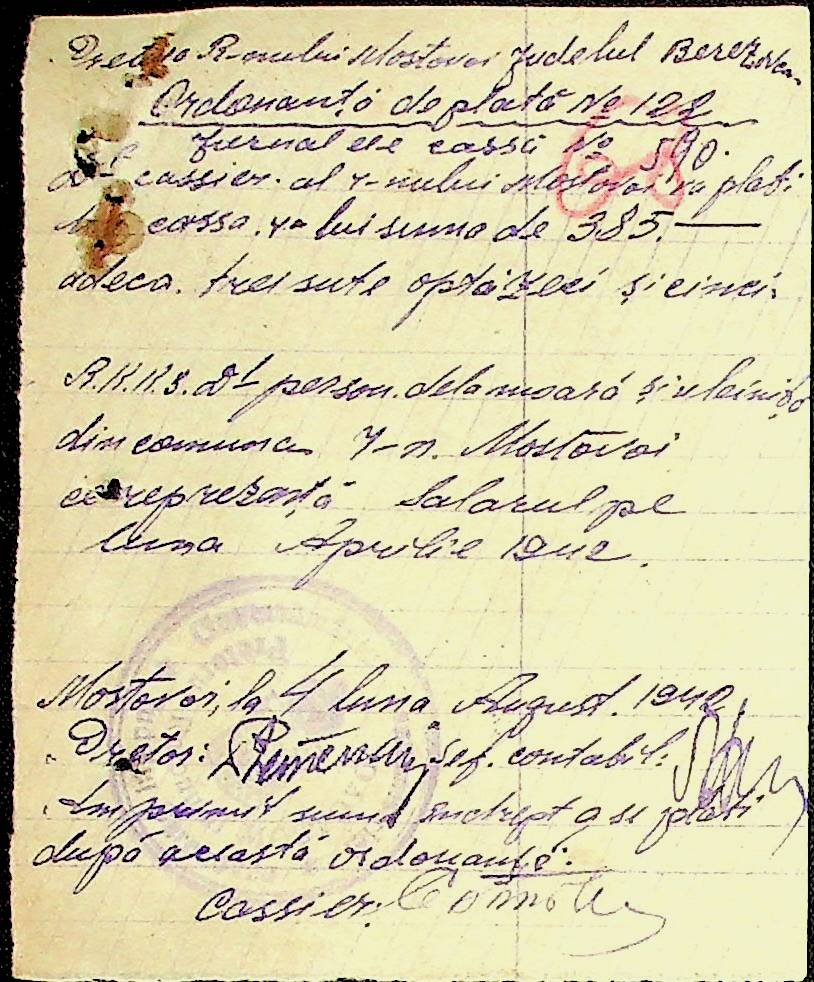 Pretura R-nului Mostovoi Judetul Berezovca
Ordonanță de plată № 122
Jurnal de cassă № 590.
Dl cassier al r-nului Mostovoi va plati
cassa r-lui suma de 385.—
adeca. trei sute optăzeci și cinci.
R.K.K.S. Dl person. dela moară și uleiniță
din comuna r-n. Mostovoi
ce reprezantă Salarul pe
luna Aprilie 1942.
Mostovoi, la 4 luna August. 1942.
Pretor: Șef. contabil:
suma andrept a se plăti
după aciastă ordonanțe.
Cassier: